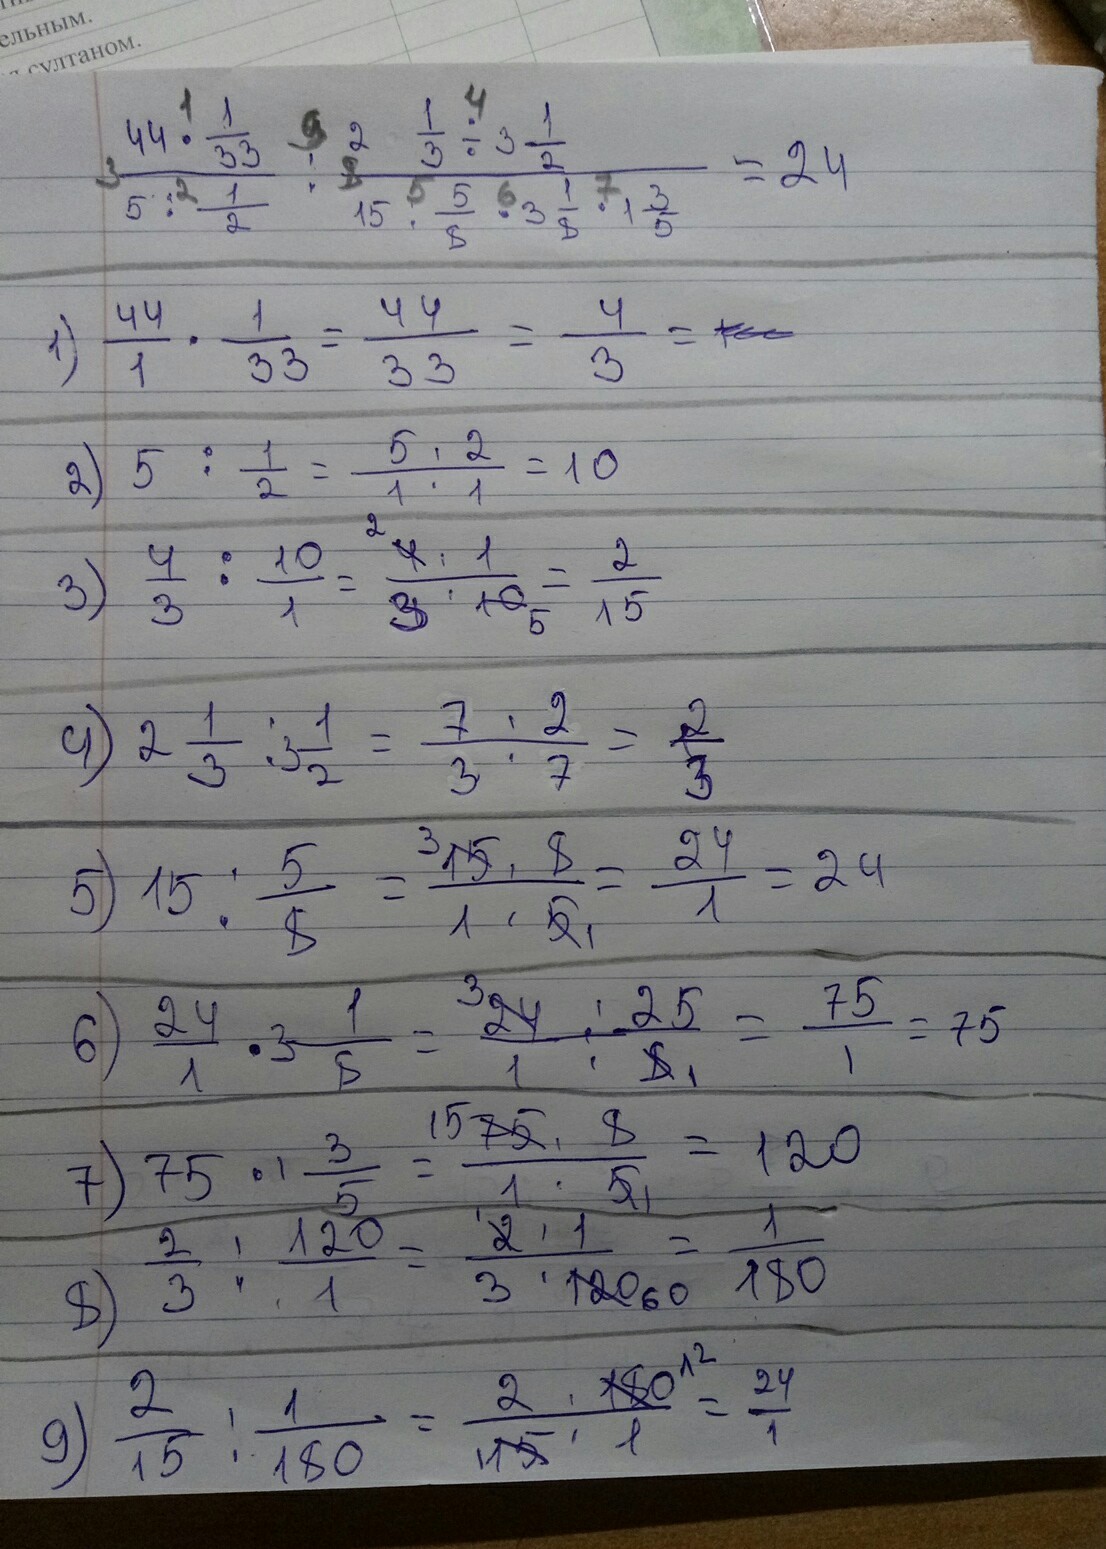 ельным.
султаном.
44 · 1/33 / 5 : 1/2 : 2 1/3 : 3 1/2 / 15 : 5/8 · 3 1/8 · 1 3/5 = 24
1) 44/1 · 1/33 = 44/33 = 4/3 =
2) 5 : 1/2 = 5 · 2 / 1 · 1 = 10
3) 4/3 : 10/1 = 4 · 1 / 3 · 10 = 2/15
4) 2 1/3 : 3 1/2 = 7 · 2 / 3 · 7 = 2/3
5) 15 : 5/8 = 15 · 8 / 1 · 5 = 24/1 = 24
6) 24/1 · 3 1/8 = 24 · 25 / 1 · 8 = 75/1 = 75
7) 75 · 1 3/5 = 75 · 8 / 1 · 5 = 120
8) 2/3 : 120/1 = 2 · 1 / 3 · 120 = 1/180
9) 2/15 : 1/180 = 2 · 180 / 15 · 1 = 24/1